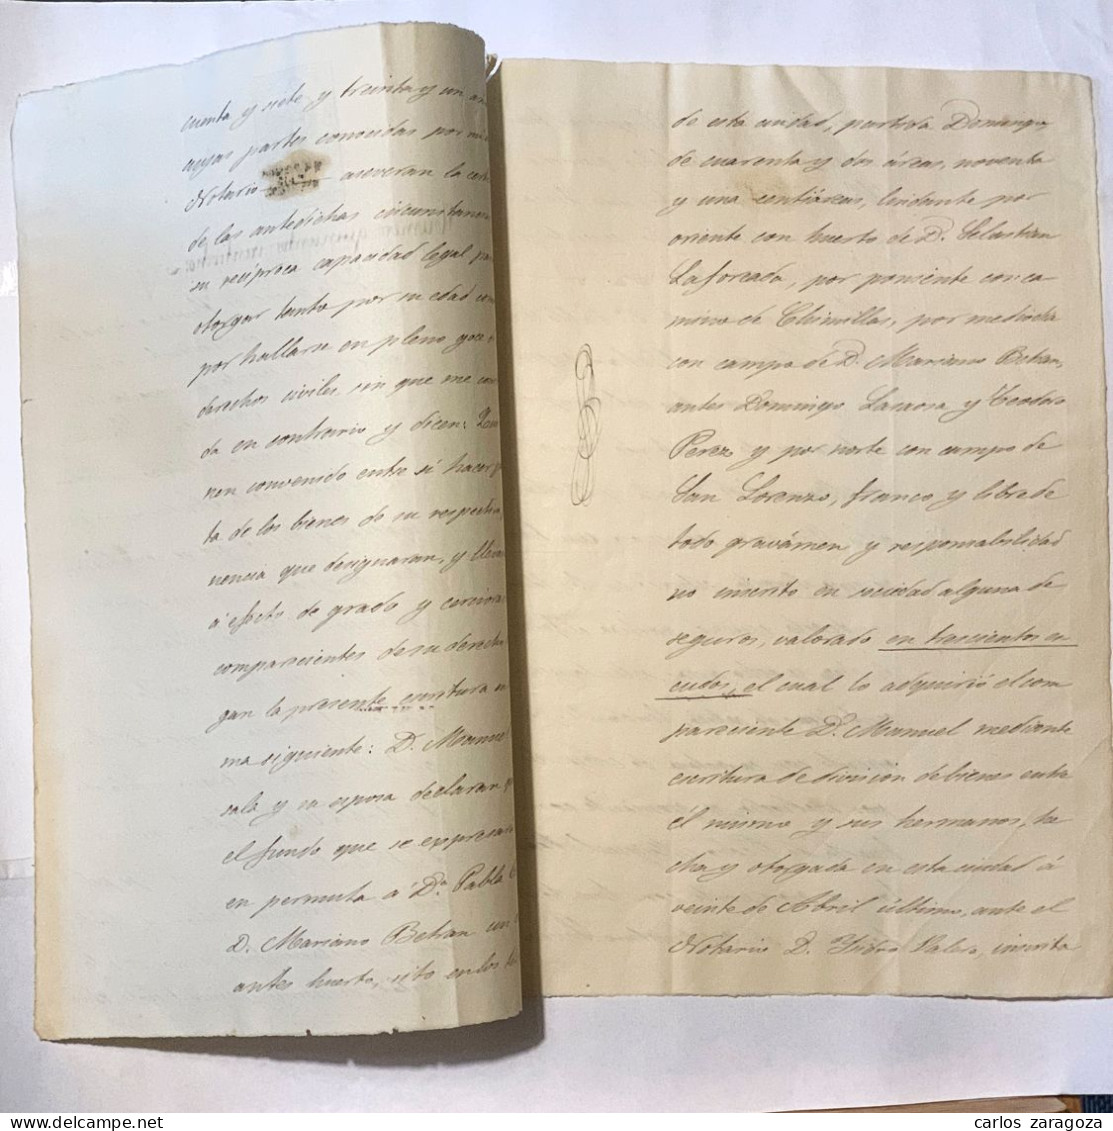 cuenta y siete y treinta y un añ
cuyas partes conocidas por mi e
Notario aseveran la cer
de las antedichas circunstan
su recíproca capacidad legal pa
otorgar tanto por su edad com
por hallarse en pleno goce
derechos civiles, sin que me con
da en contrario y dicen: Que
nen convenido entre sí hacer p
ta de los bienes de su respectiva
nencia que designaran, y lleva
á efecto de grado y
comparecientes de su derecho
gan la presente escritura en
ma siguiente: D. Manuel
sala y su esposa declaran q
el fundo que se expresa
en permuta a Dª Pabla
D. Mariano Betran un
antes huerto, sito en los
de esta ciudad, partida Domingo,
de cuarenta y dos áreas, noventa
y una centiáreas, lindante por
oriente con huerto de D. Sebastian
Laforcada, por poniente con ca
mino de Chimillas, por mediodia
con campo de D. Mariano Betran,
antes Domingo Lacasa y Teodoro
Perez y por norte con campo de
San Lorenzo, franco y libre de
todo gravámen y responsabilidad
no inscrito en sociedad alguna de
seguros, valorado en trescientos es
cudos, el cual lo adquirió el com
pareciente D. Manuel mediante
escritura de division de bienes entre
él mismo y sus hermanos, he
cha y otorgada en esta ciudad á
veinte de Abril último, ante el
Notario D. Ysidro Valero, inscrita
carlos zaragoza